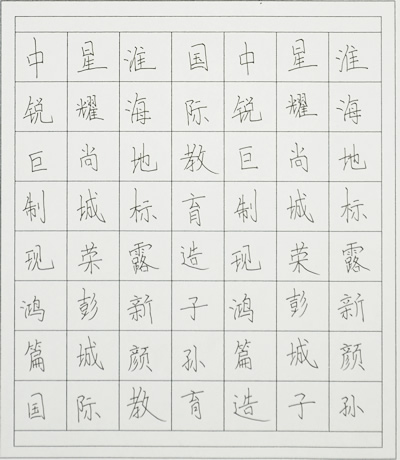 中锐巨制现鸿篇
星耀尚城荣彭城
淮海地标露新颜
国际教育造子孙
中锐巨制现鸿篇
星耀尚城荣彭城
淮海地标露新颜
国际教育造子孙